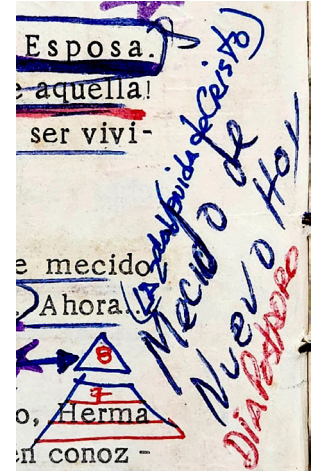 Esposa.
e aquella!
ser vivi-
e mecido
Ahora..
o, Herma
en conoz-
8
7
vida de Cristo)
Mecido de
Nuevo Hoy
Día Postrero